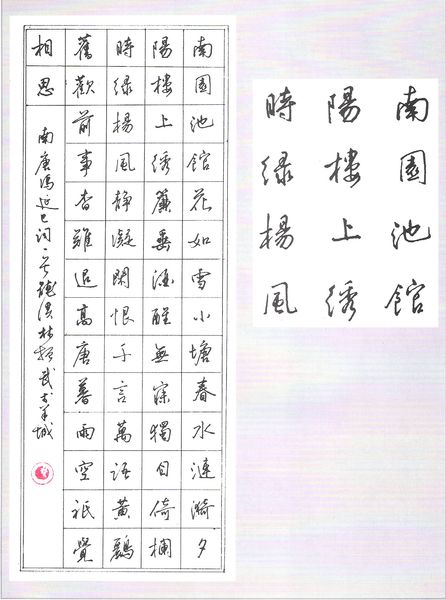 南園池館花如雪小塘春水漣漪夕
陽樓上绣簾垂酒醒無寐獨自倚欄
時绿楊風静凝閑恨千言萬語黄鸝
舊歡前事杳難追高唐暮雨空祇覺
相思
南唐馮延巳词一首 林 书 羊城
南園池館
陽樓上绣
時绿楊風